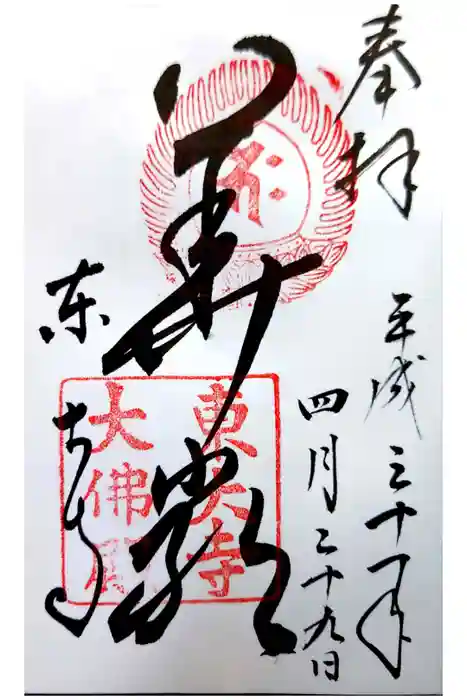 奉拝
平成三十一年
四月二十九日
華嚴
東大寺
東大寺
大佛殿